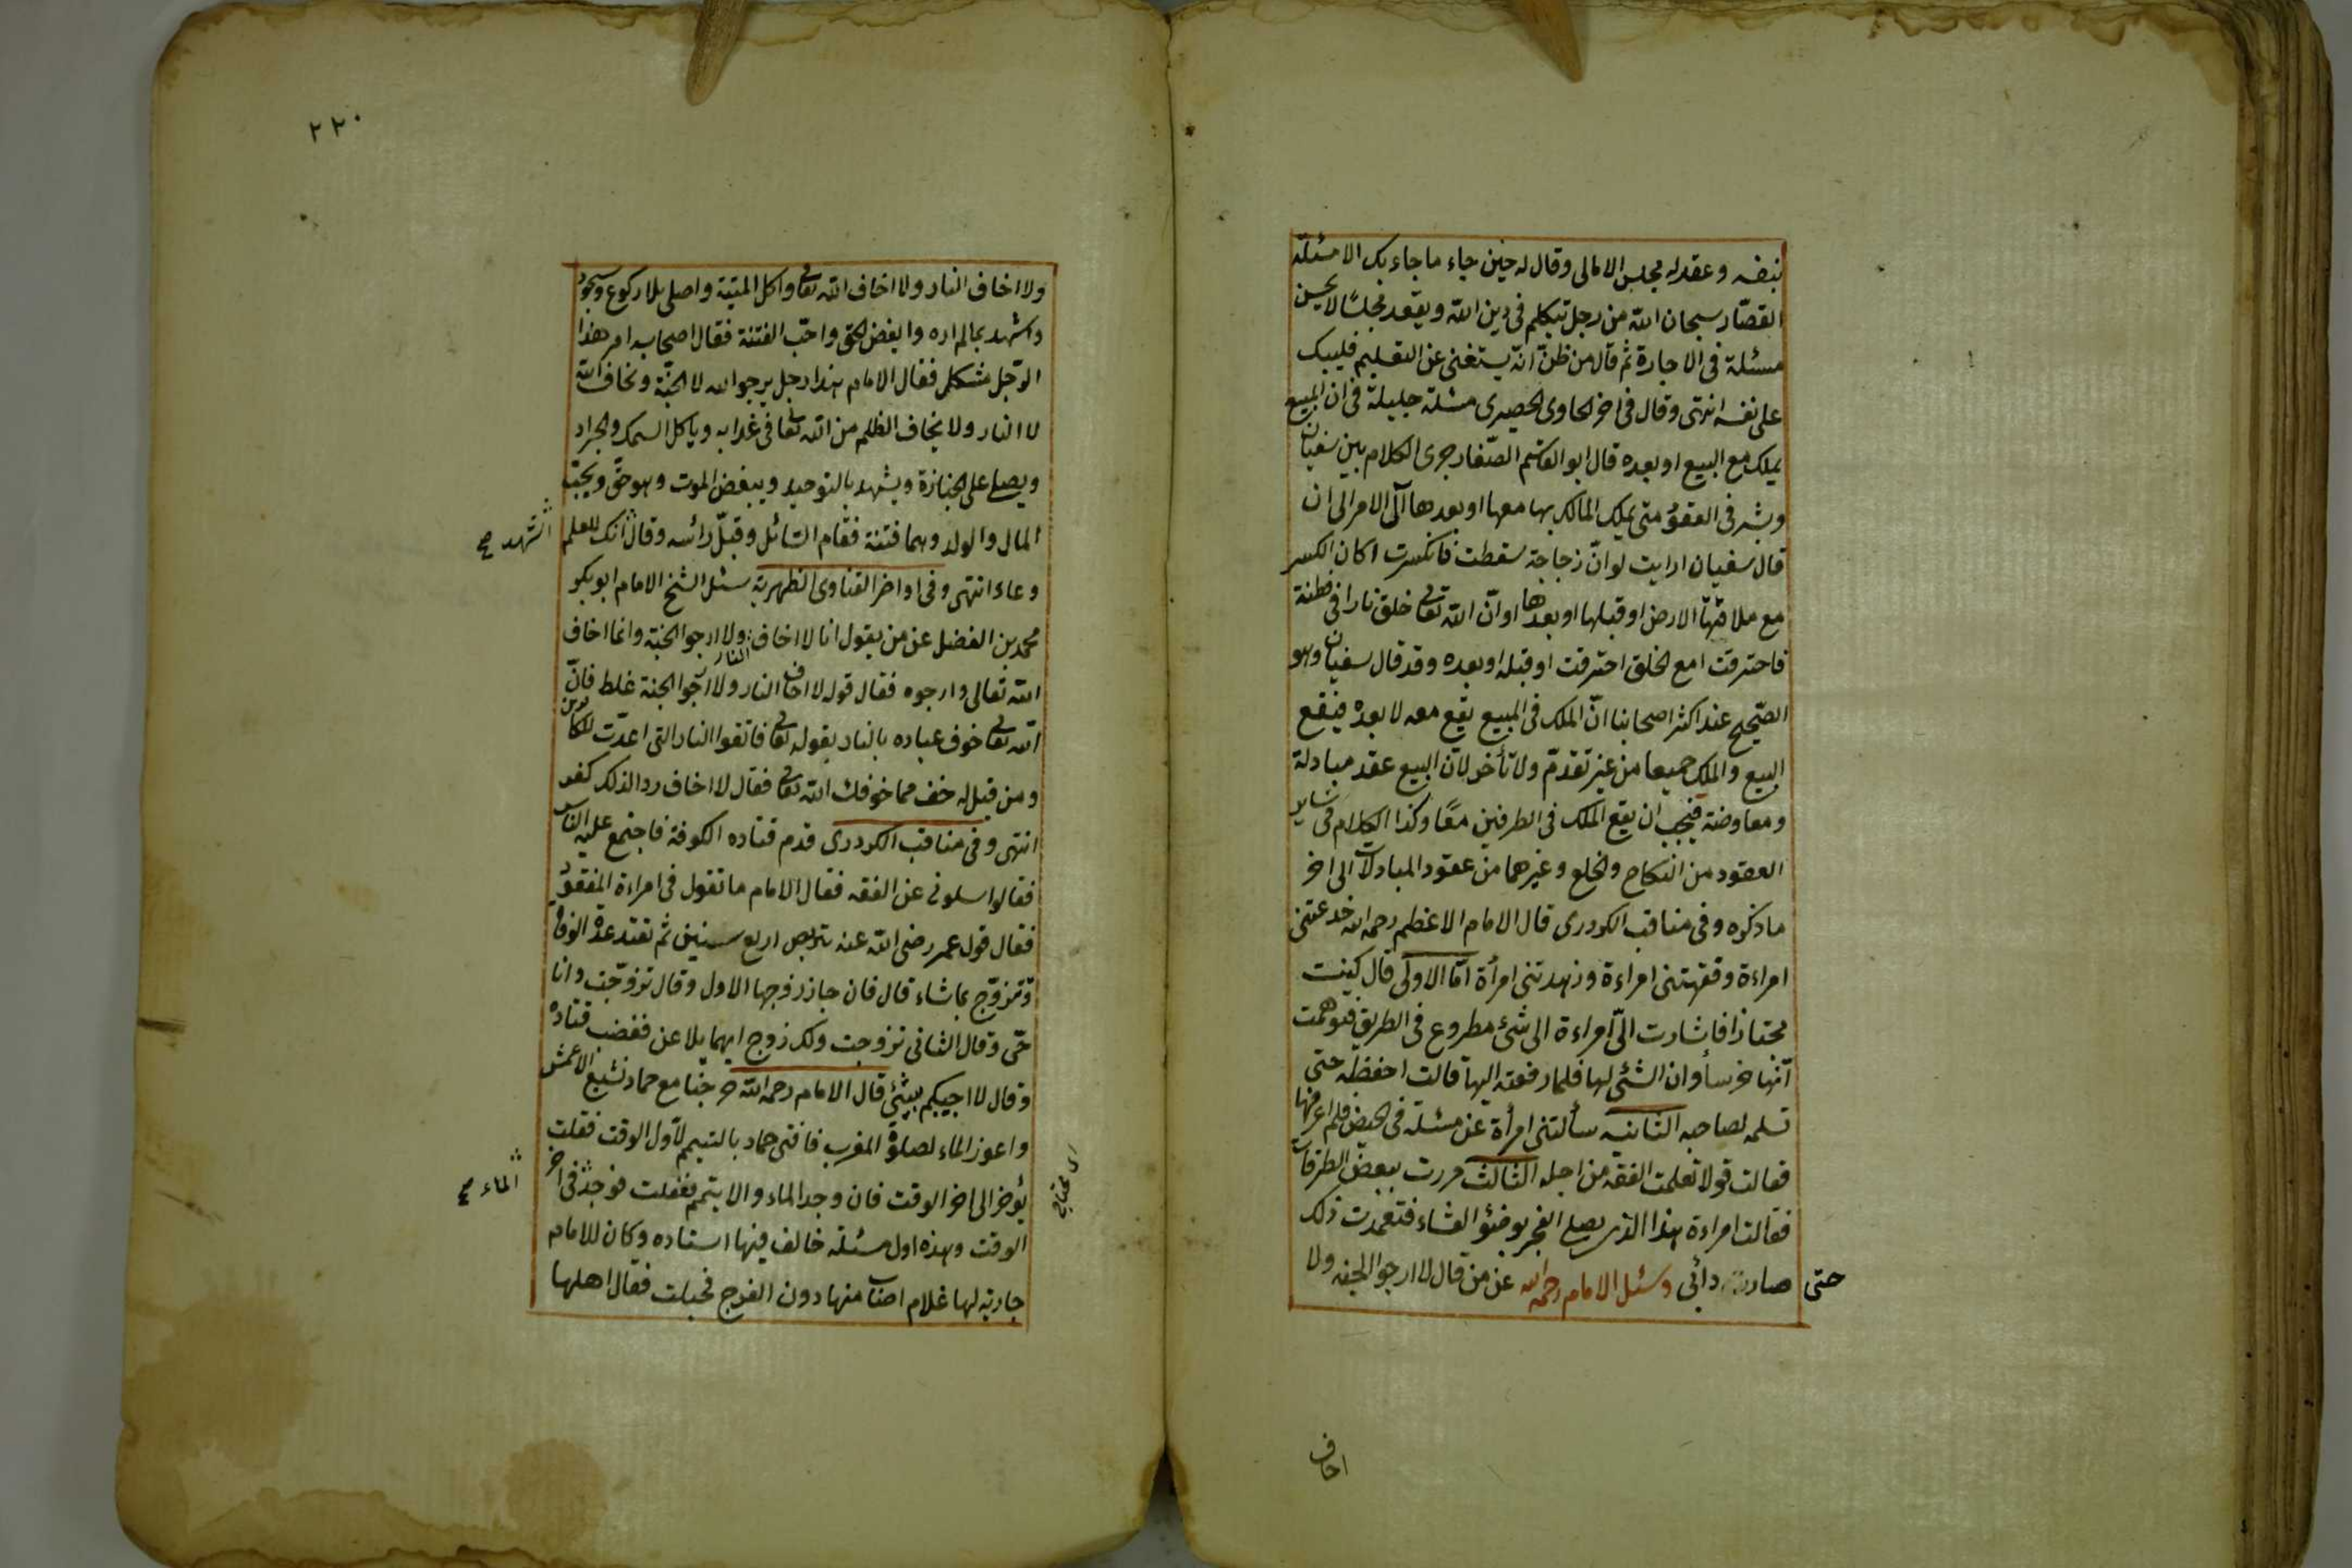 بنفسه وعقد له مجلس الامالى وقال له حين جاء ما جاء بك الا مسئلة
القصّار سبحان الله من رجل تيكلم فى دين الله ويقعد مجلسًا لا يحسن
مسئلة فى الاجارة ثم قال من ظنّ انّه يستغنى عن التعليم فليبك
على نفسه انتهى وقال فى اخر الحاوى الحصيرى مسئلة جليلة فى ان المبيع
يملك مع البيع او بعده قال ابو القاسم الصّفار جرى الكلام بين سفيان
وبشر فى العقود متى يملك المالك بها معها او بعدها آل الامر الى ان
قال سفيان ارايت لو انّ زجاجة سقطت فانكسرت اكان الكسر
مع ملاقتها الارض او قبلها او بعدها او انّ الله تعالى خلق نارا فى قطنة
فاحترقت امع الخلق احترقت او قبله او بعده وقد قال سفيان وهو
الصّحيح عند اكثر اصحابنا انّ الملك فى المبيع يقع معه لا بعده فيقع
البيع والملك جميعا من غير تقدّم ولا تأخر لان البيع عقد مبادلة
ومعاوضة فيجب ان يقع الملك فى الطرفين معًا وكذا الكلام فى سائر
العقود من النكاح والخلع وغيرهما من عقود المبادلات الى اخر
ما ذكره وفى مناقب الكردرى قال الامام الاعظم رحمه الله خدعتنى
امراءة وفقهتنى امراءة وزهدتنى امرأة امّا الاولى قال كنت
مجتازا فاشارت الىّ امراءة الى شئ مطروع فى الطريق فتوهمت
آنها خرسأ وان الشئى لها فلما رفعته اليها قالت احفظه حتى
تسلمه لصاحبه الثانيه سألتنى امرأة عن مسئلة فى الحيض فلم اعرفها
فقالت قولا تعلمت الفقه من اجله الثالث مررت ببعض الطرقات
فقالت امراءة هذا الذى يصلى الفجر بوضئو العشاء فتعمدت ذلك
حتى صار دائبى وسئل الامام رحمه الله عن من قال لا ارجو الجنه ولا
اخاف
٢٢٠
ولا اخاف النار ولا اخاف الله تعالى واكل الميتة واصلى بلا ركوع وسجود
واشهد بما لم اره وابغض الحق واحّب الفتنة فقال اصحابه امر هذا
الرّجل مشكل فقال الامام هذا رجل يرجو الله لا الجنّة ونخاف الله
لا النار ولا يخاف الظلم من الله تعالى فى عذابه وياكل السمك والجراد
ويصلى على الجنازة ويشهد بالتوحيد ويبغض الموت وهو حقّ ويحبّ
المال والولد وهما فتنة فقام السّائل وقبّل رأسه وقال انك للعلم
اشهد صح
وعاء انتهى وفى اواخر الفتاوى الظهرية سئل الشخ الامام ابو بكر
محمد بن الفضل عن من يقول انا لا اخاف النار ولا ارجو الجنة وانما اخاف
الله تعالى وارجوه فقال قوله لا اخاف النار ولا ارجوا الجنة غلط فانّ
الله تعالى خوف عباده بالنار بقوله تعالى فاتقوا النار التى اعدّت للكافرين
ومن قيل له خف مما خوفك الله تعالى فقال لا اخاف ردا لذلك كفر
انتهى وفى مناقب الكردرى قدم قتاده الكوفة فاجتمع عليه الناس
فقالوا سلونى عن الفقه فقال الامام ما تقول فى امراءة المفقود
فقال قول عمر رضى الله عنه تتربص اربع سنين ثم تعتد عدة الوفاة
وتزوّج بما شاء قال فان جاز زوجها الاول وقال تزوّجت وانا
حّى وقال الثانى تزوجت ولك زوج ايهما يلاعن فغضب قتاده
وقال لا اجيبكم بشئى قال الامام رحمه الله خرجنا مع حماد نشيع الاعمش
واعوز الماء لصلوة المغرب فافتى حماد بالتيمم لاّول الوقت فقلت
يؤخر الى اخر الوقت فان وجد الماء والا يتمم ففعلت فوجد فى اخر
الماء صح
الوقت وهذه اول مسئلة خالف فيها استاده وكان للامام
جارية لها غلام اصاب منها دون الفرج فحبلت فقال اهلها